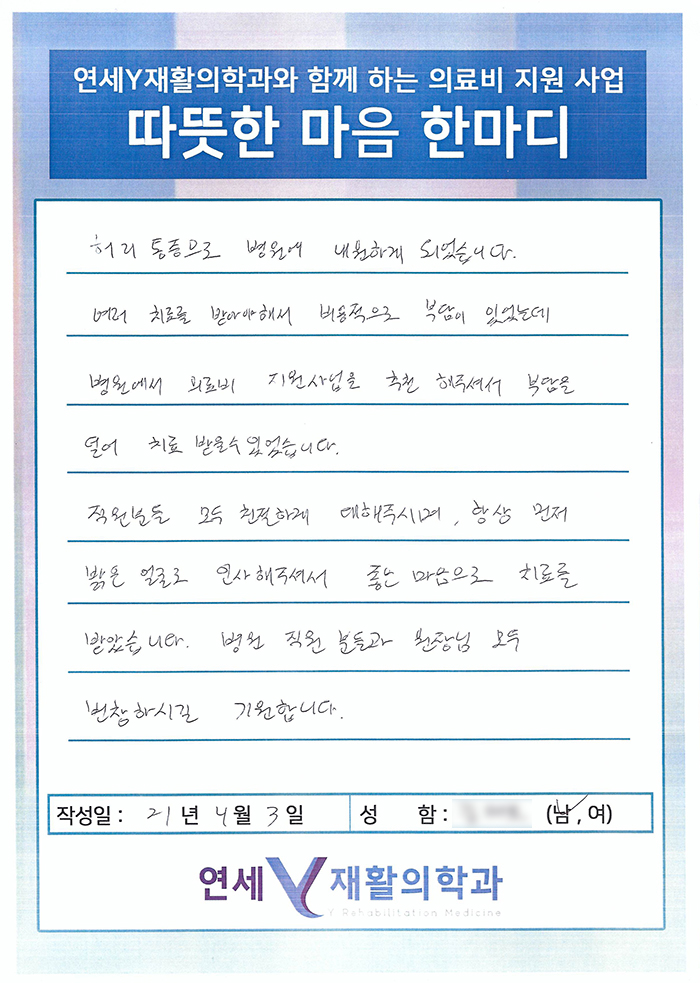 연세Y재활의학과와 함께 하는 의료비 지원 사업
따뜻한 마음 한마디
허리 통증으로 병원에 내원하게 되었습니다.
여러 치료를 받아야해서 비용적으로 부담이 있었는데
병원에서 의료비 지원사업을 추천 해주셔서 부담을
덜어 치료 받을수 있었습니다.
직원분들 모두 친절하게 대해주시며, 항상 먼저
밝은 얼굴로 인사해주셔서 좋은 마음으로 치료를
받았습니다. 병원 직원 분들과 원장님 모두
번창하시길 기원합니다.
작성일 : 21 년 4 월 3 일 성 함 : (남, 여)
연세 Y 재활의학과
Y Rehabilitation Medicine